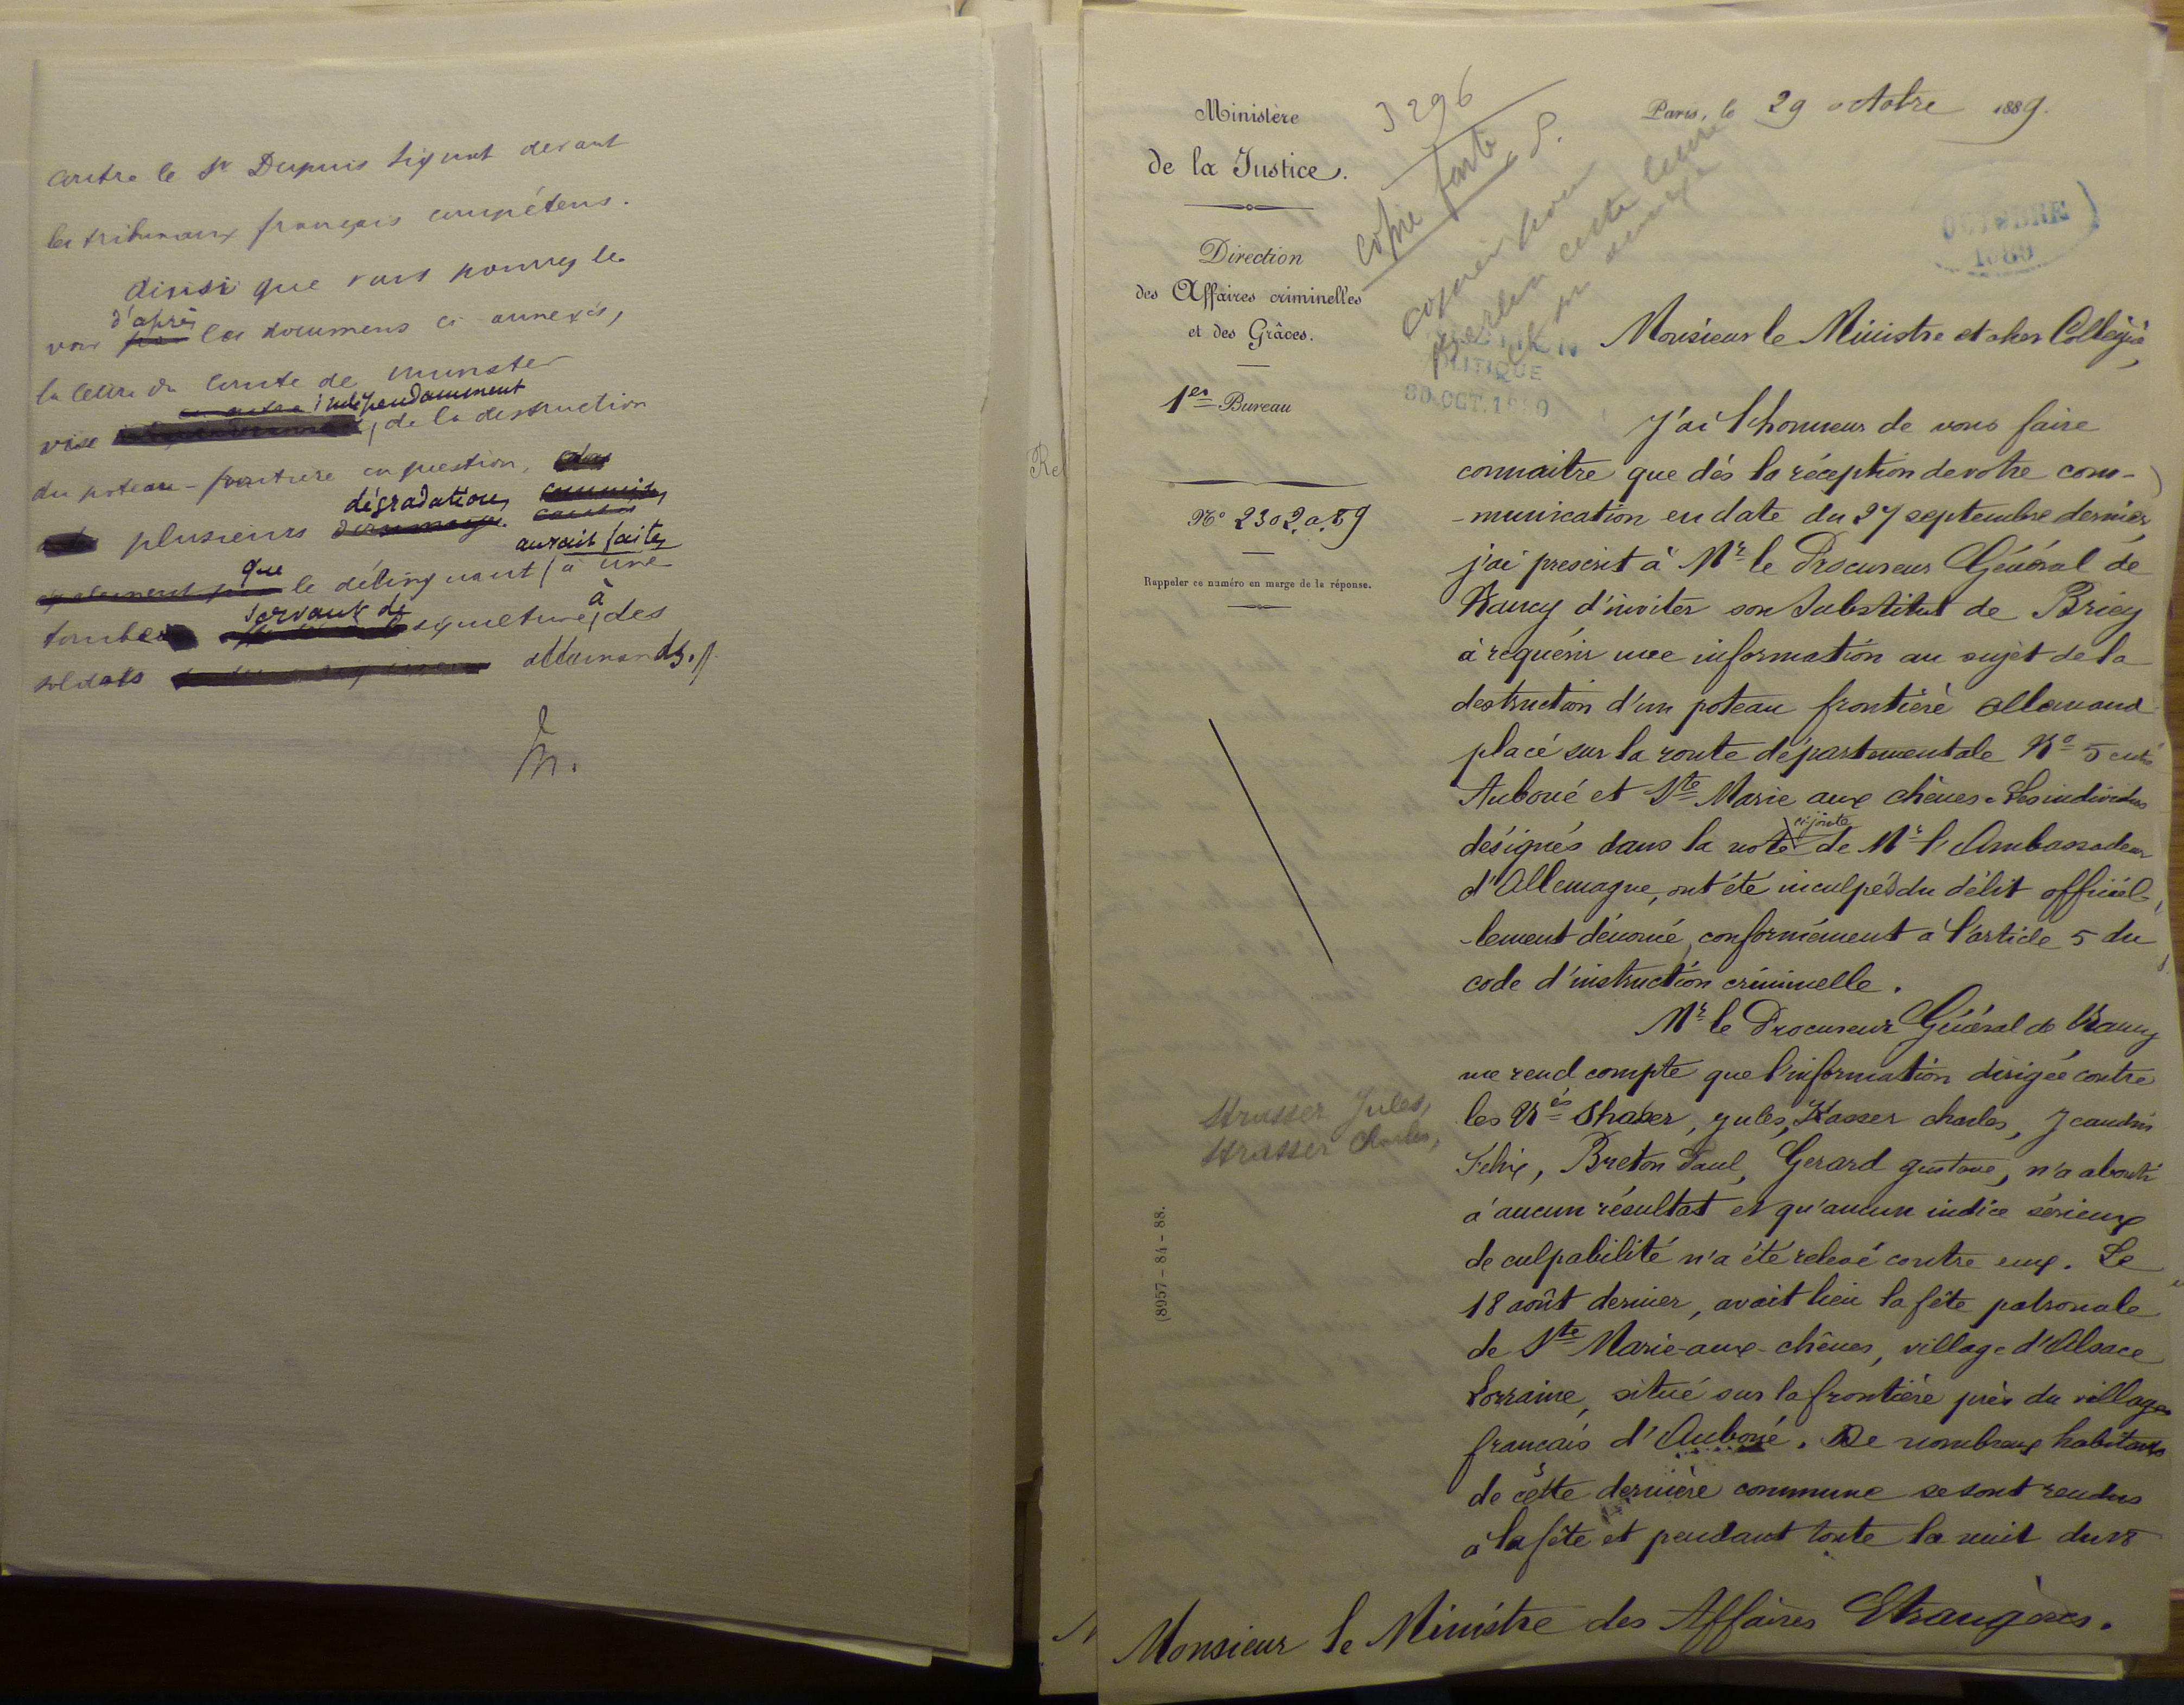 contre le Sr Dupuis Lignot devant
les tribunaux français compétens.
Ainsi que vous pourrez le
d'après
voir par les documens ci annexés,
la lettre du Comte de Munster
indépendamment
vise de la destruction
du poteau-frontière en question,
dégradations commises
plusieurs dommages causés
aurait faites
que
également par le délinquant à une
servant de à
tombe sépulture, des
soldats allemands.
Ministère
de la Justice.
Direction
des Affaires criminelles
et des Grâces.
1er Bureau
No 2302.a.89
Rappeler ce numéro en marge de la réponse.
3296
copie faite
S.
copier pour
Berlin cette lettre
et son annexe
Paris, le 29 octobre 1889.
OCTOBRE
1889
POLITIQUE
30 OCT. 1889
Monsieur le Ministre et cher Collègue,
J'ai l'honneur de vous faire
connaitre que dès la réception de votre com-
-munication en date du 27 septembre dernier,
j'ai prescrit à Mr le Procureur Général de
Nancy d'inviter son Substitut de Briey
à requérir une information au sujet de la
destruction d'un poteau frontière allemand
placé sur la route départementale No 5 entre
Auboué et Ste Marie aux chênes. Les individus
ci-jointe
désignés dans la note de Mr l'Ambassadeur
d'Allemagne, ont été inculpés du délit officiel-
-lement dénoncé, conformément à l'article 5 du
code d'instruction criminelle.
Mr le Procureur Général de Nancy
me rend compte que l'information dirigée contre
Strasser Jules,
Strasser Charles,
les Nés Shasser, Jules, Krasser charles, Jeandin
Félix, Breton Paul, Gerard gustave, n'a abouti
à aucun résultat et qu'aucun indice sérieux
de culpabilité n'a été relevé contre eux. Le
18 août dernier, avait lieu la fête patronale
de Ste Marie-aux-chênes, village d'Alsace
Lorraine, situé sur la frontière près du village
français d'Auboué. De nombreux habitants
de cette dernière commune se sont rendus
à la fête et pendant toute la nuit du 18
(8957-84-88.
Monsieur le Ministre des Affaires Etrangères.